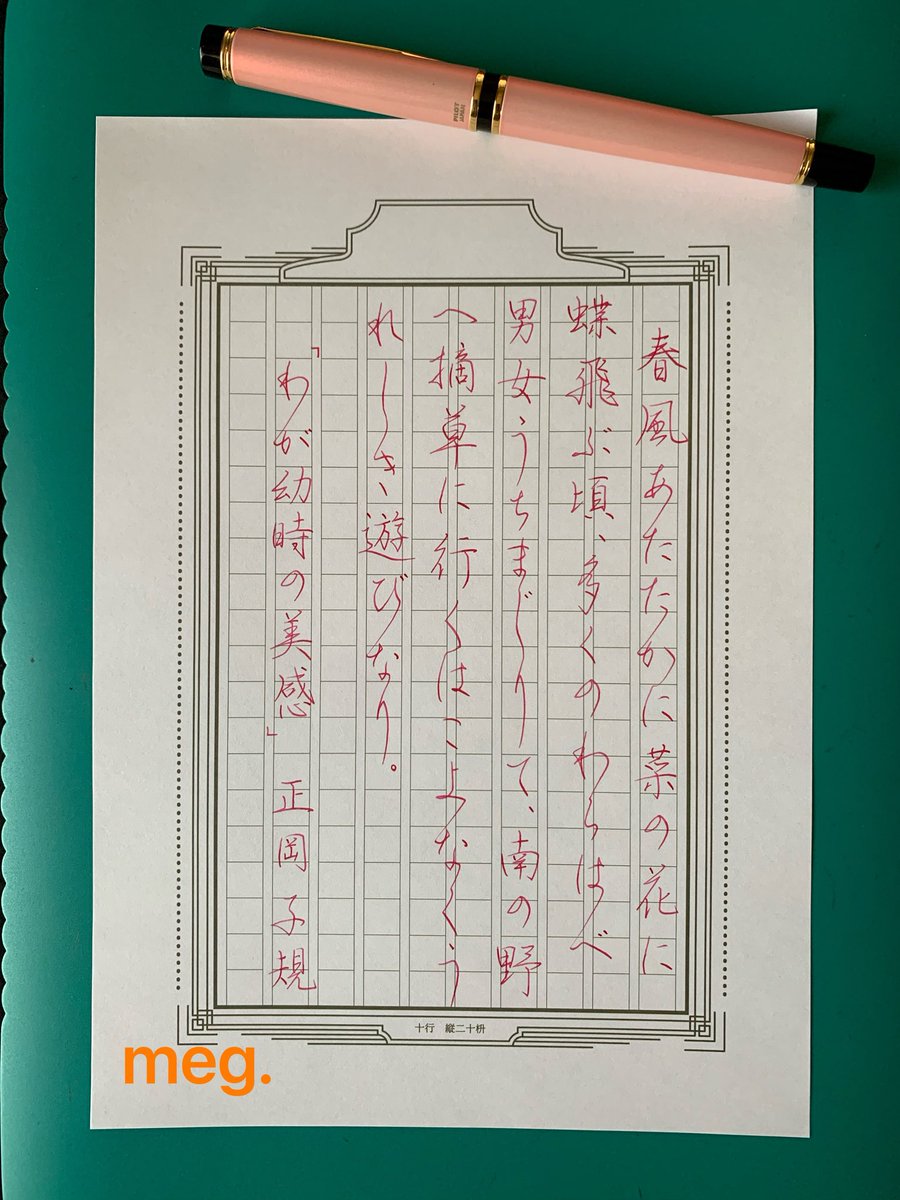 春風あたたかに菜の花に
蝶飛ぶ頃、多くのわらはべ
男女うちまじりて、南の野
へ摘草に行くはこよなくう
れしき遊びなり。
「わが幼時の美感」 正岡子規
十行 縦二十枡
PILOT
JAPAN
meg.